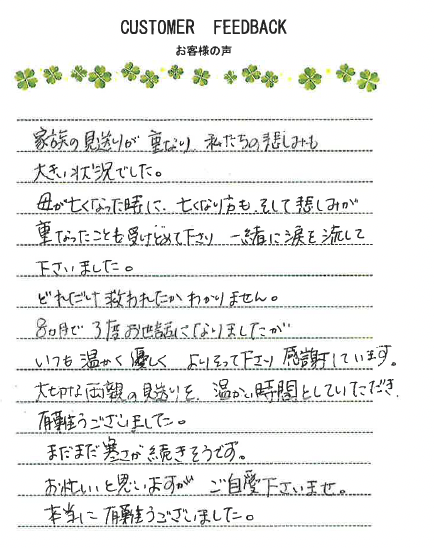 CUSTOMER FEEDBACK
お客様の声
家族の見送りが重なり、私たちの悲しみも
大きい状況でした。
母が亡くなった時に、亡くなり方も、そして悲しみが
重なったことも受けとめて下さり 一緒に涙を流して
下さいました。
どれだけ救われたかわかりません。
8ヵ月で3度お世話になりましたが
いつも温かく優しく よりそって下さり感謝しています。
大切な両親の見送りを、温かい時間としていただき、
有難うございました。
まだまだ寒さが続きそうです。
お忙しいと思いますが ご自愛下さいませ。
本当に有難うございました。